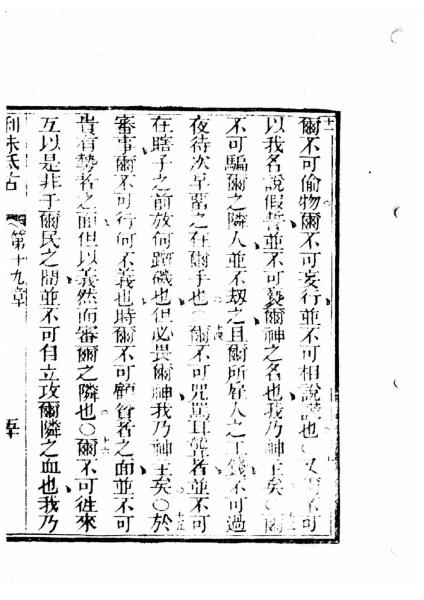 十一
爾不可偷物爾不可妄行並不可相說謊也〇又爾不可
以我名說假誓並不可褻爾神之名也我乃神主矣〇爾
不可騙爾之隣人並不刼之且爾所雇人之工錢不可過
夜待次早留之在爾手也〇爾不可咒罵耳聾者並不可
在瞎子之前放何躓磯也但必畏爾神我乃神主矣〇於
審事爾不可行何不義也時爾不可顧貧者之面並不可
貴有勢者之面但以義然而審爾之隣也〇爾不可徃來
互以是非于爾民之間並不可自立攻爾隣之血也我乃
利未氏古 第十九章